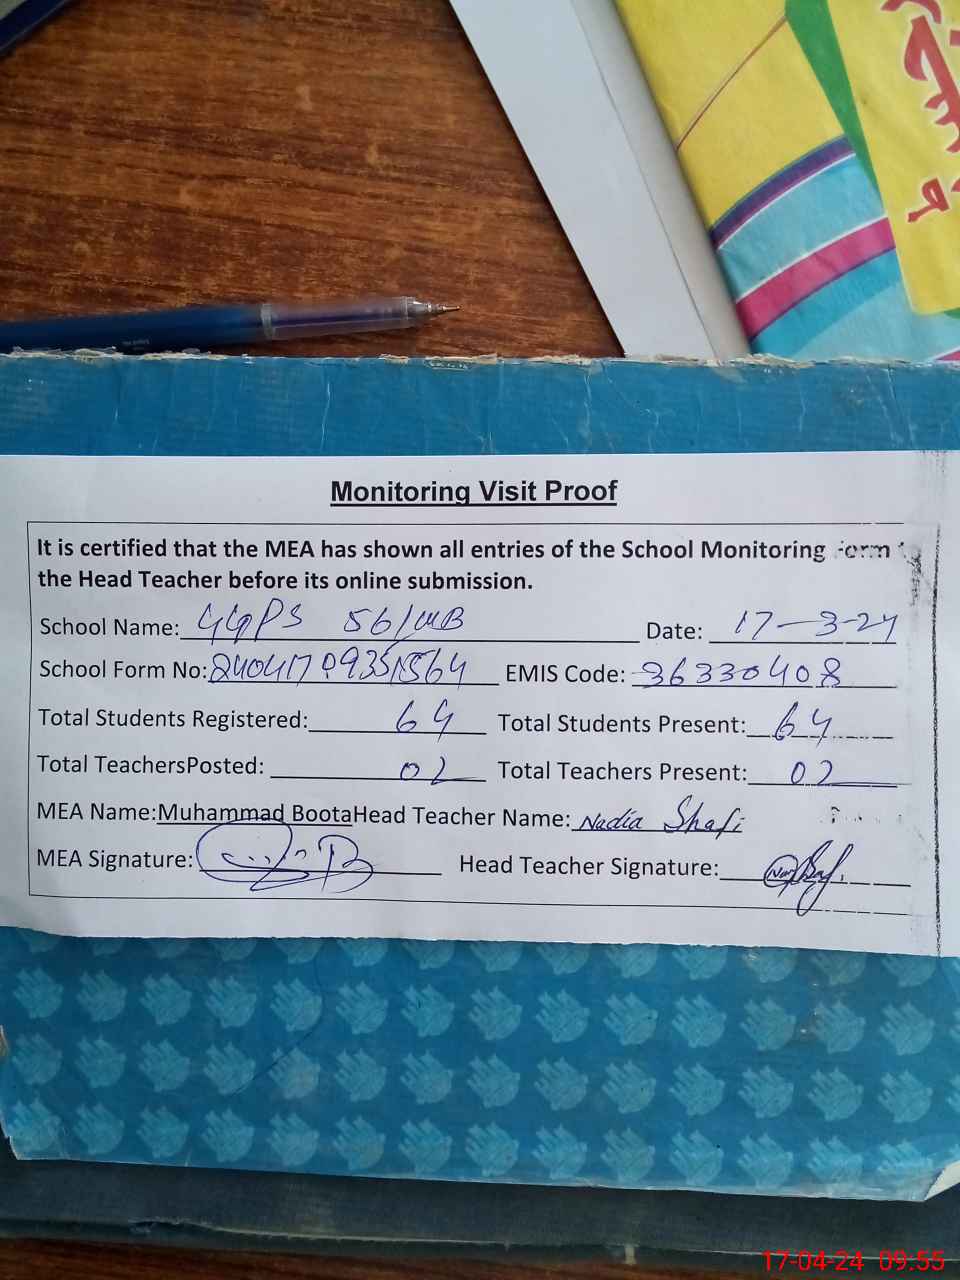 Monitoring Visit Proof
It is certified that the MEA has shown all entries of the School Monitoring Form
the Head Teacher before its online submission.
School Name: GGPS 56/MB Date: 17-3-24
School Form No: EMIS Code: 36330408
Total Students Registered: 64 Total Students Present: 64
Total TeachersPosted: 02 Total Teachers Present: 02
MEA Name:Muhammad BootaHead Teacher Name: Nadia Shafi
MEA Signature: Head Teacher Signature:
17-04-24 09:55